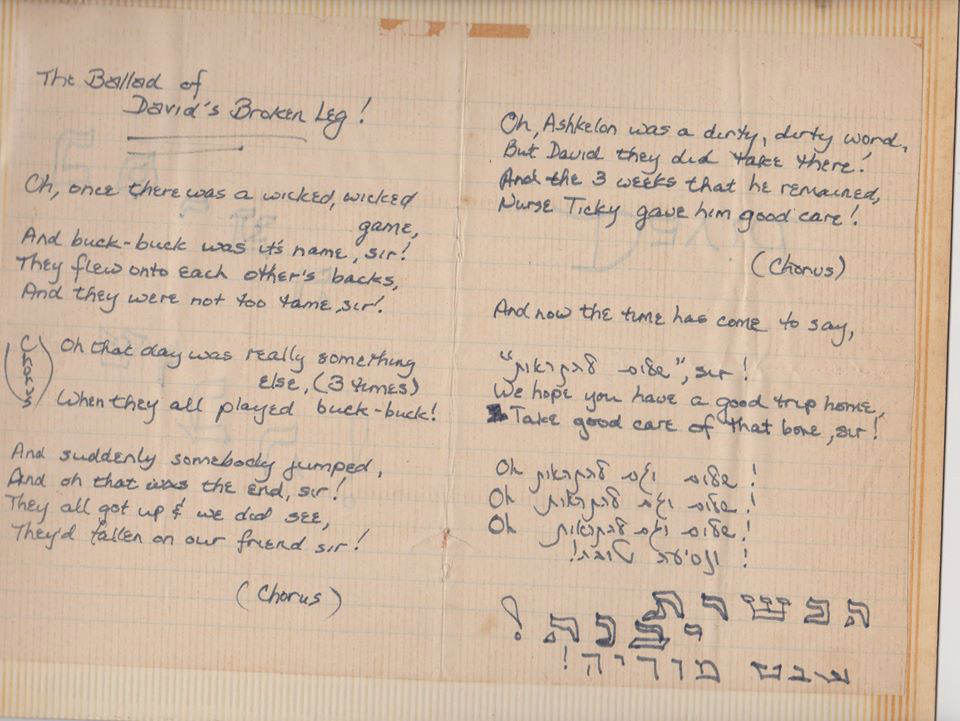 The Ballad of
David's Broken Leg!
Oh, once there was a wicked, wicked
game,
And buck-buck was it's name, sir!
They flew onto each other's backs,
And they were not too tame, sir!
Chorus
Oh that day was really something
else, (3 times)
When they all played buck-buck!
And suddenly somebody jumped,
And oh that was the end, sir!
They all got up & we did see,
They'd fallen on our friend sir!
(Chorus)
Oh, Ashkelon was a dirty, dirty word,
But David they did take there!
And the 3 weeks that he remained,
Nurse Ticky gave him good care!
(Chorus)
And now the time has come to say,
"שלום להתראות", sir!
We hope you have a good trip home,
Take good care of that bone, sir!
Oh שלום וגם להתראות!
Oh שלום וגם להתראות!
Oh שלום וגם להתראות!
ונסיעה טובה!!
הכשרת
יבנה!
שבט מוריה!